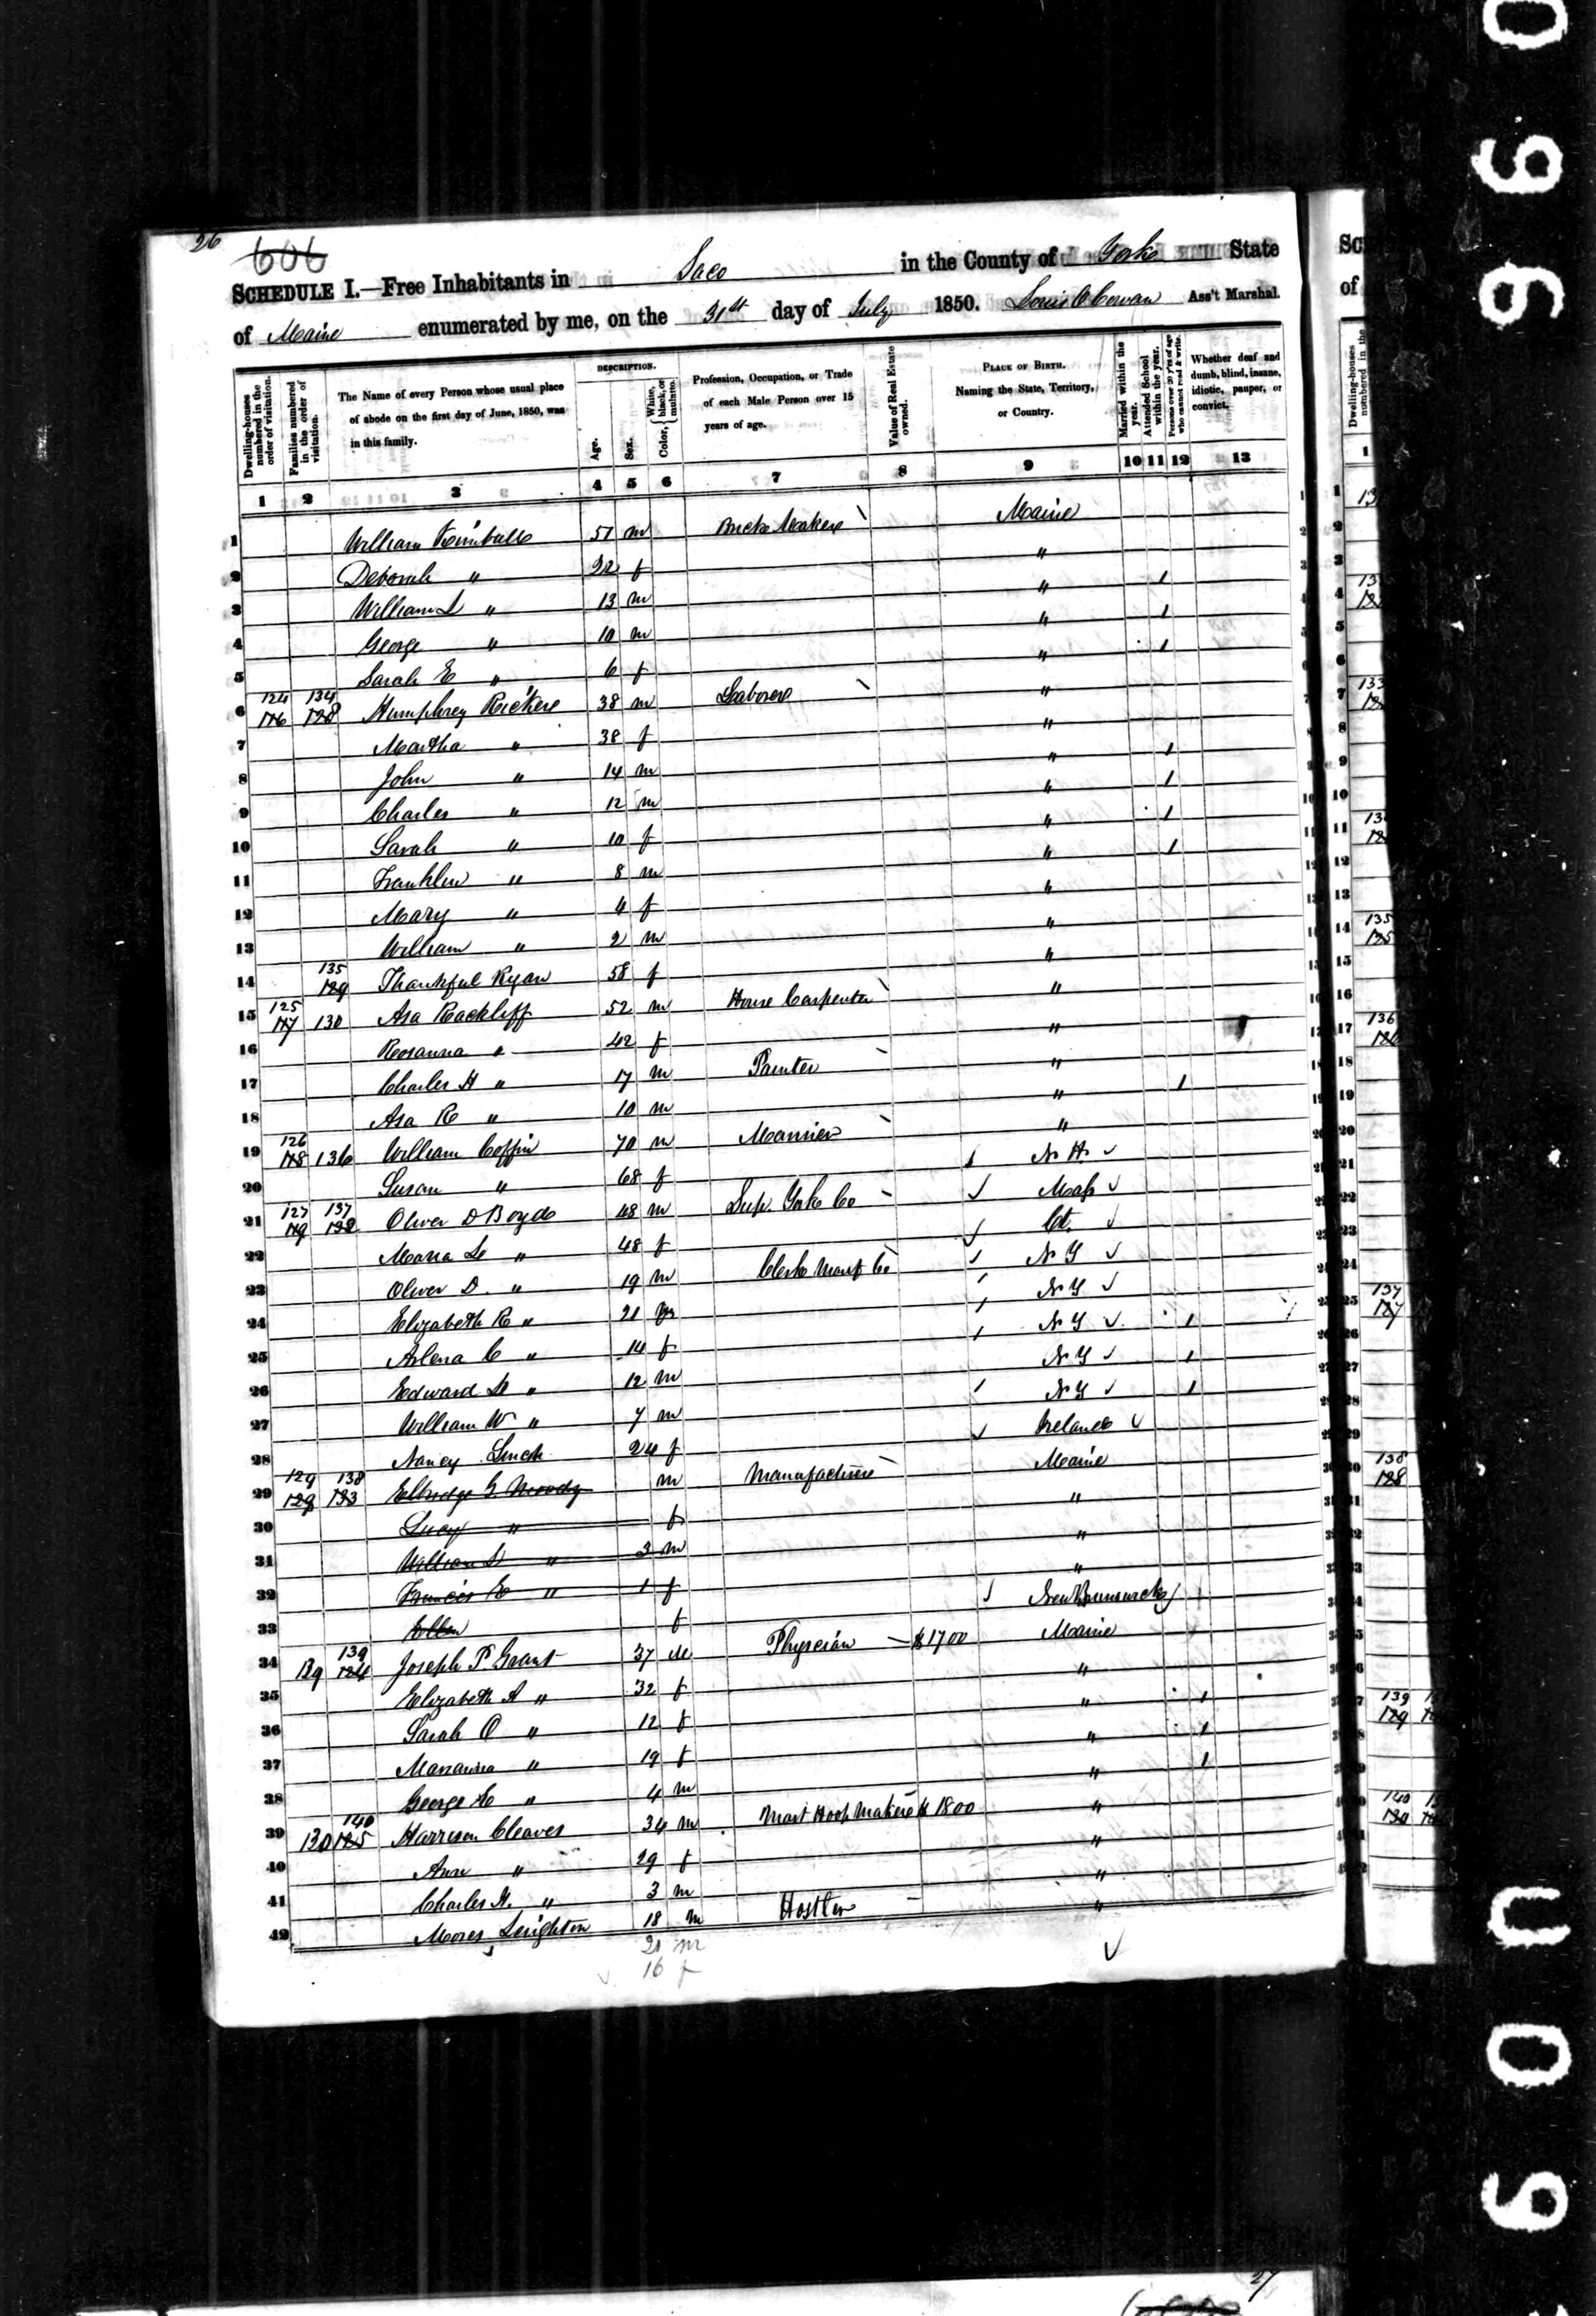 26
606
SCHEDULE I.—Free Inhabitants in Saco in the County of York State
of Maine enumerated by me, on the 31st day of July 1850. Louis O Cowan Ass't Marshal.
Dwelling-houses numbered in the order of visitation. Families numbered in the order of visitation. The Name of every Person whose usual place of abode on the first day of June, 1850, was in this family. DESCRIPTION. Age. Sex. Color, White, black, or mulatto. Profession, Occupation, or Trade of each Male Person over 15 years of age. Value of Real Estate owned. PLACE OF BIRTH. Naming the State, Territory, or Country. Married within the year. Attended School within the year. Persons over 20 y'rs of age who cannot read & write. Whether deaf and dumb, blind, insane, idiotic, pauper, or convict.
1 2 3 4 5 6 7 8 9 10 11 12 13
1 William Kimball 51 m Brick Maker Maine
2 Deborah " f "
3 William L " 13 m " 1
4 George " 10 m " 1
5 Sarah E " 6 f " 1
6 124 116 134 128 Humphrey Ricker 38 m Laborer "
7 Martha " 38 f "
8 John " 14 m " 1
9 Charles " 12 m " 1
10 Sarah " 10 f " 1
11 Franklin " 8 m " 1
12 Mary " 4 f "
13 William " 2 m "
14 135 129 Thankful Ryan 58 f "
15 125 117 130 Asa Rackliff 52 m House Carpenter "
16 Rosanna " 42 f "
17 Charles H " 17 m Painter "
18 Asa R " 10 m " 1
19 126 118 136 William Coffin 70 m Mariner "
20 Susan " 68 f N H
21 127 119 137 132 Oliver D Boyd 48 m Sup. York Co Mass
22 Maria L " 48 f Ct.
23 Oliver D. " 19 m Clerk Manf Co N Y
24 Elizabeth R " 21 N Y
25 Arlena C " 14 f N Y 1
26 Edward L " 12 m N Y 1
27 William W " 7 m N Y 1
28 Nancy Linch 24 f Ireland
29 129 138 133 Elbridge G. Moody m Manufacturer Maine
30 Lucy " f "
31 William L " 3 m "
32 Francis E " 1 f "
33 Ellen f New Brunswick
34 129 139 134 Joseph P. Grant 37 M Physician $1700 Maine
35 Elizabeth A " 32 f "
36 Sarah O " 12 f " 1
37 Marianna " f " 1
38 George E " 4 m " 1
39 130 140 135 Harrison Cleaves 34 m Mast Hoop Maker $1800 "
40 Ann " 29 f "
41 Charles H. " 3 m "
42 Moses Leighton 18 m Hostler "
21 m
16 f
27